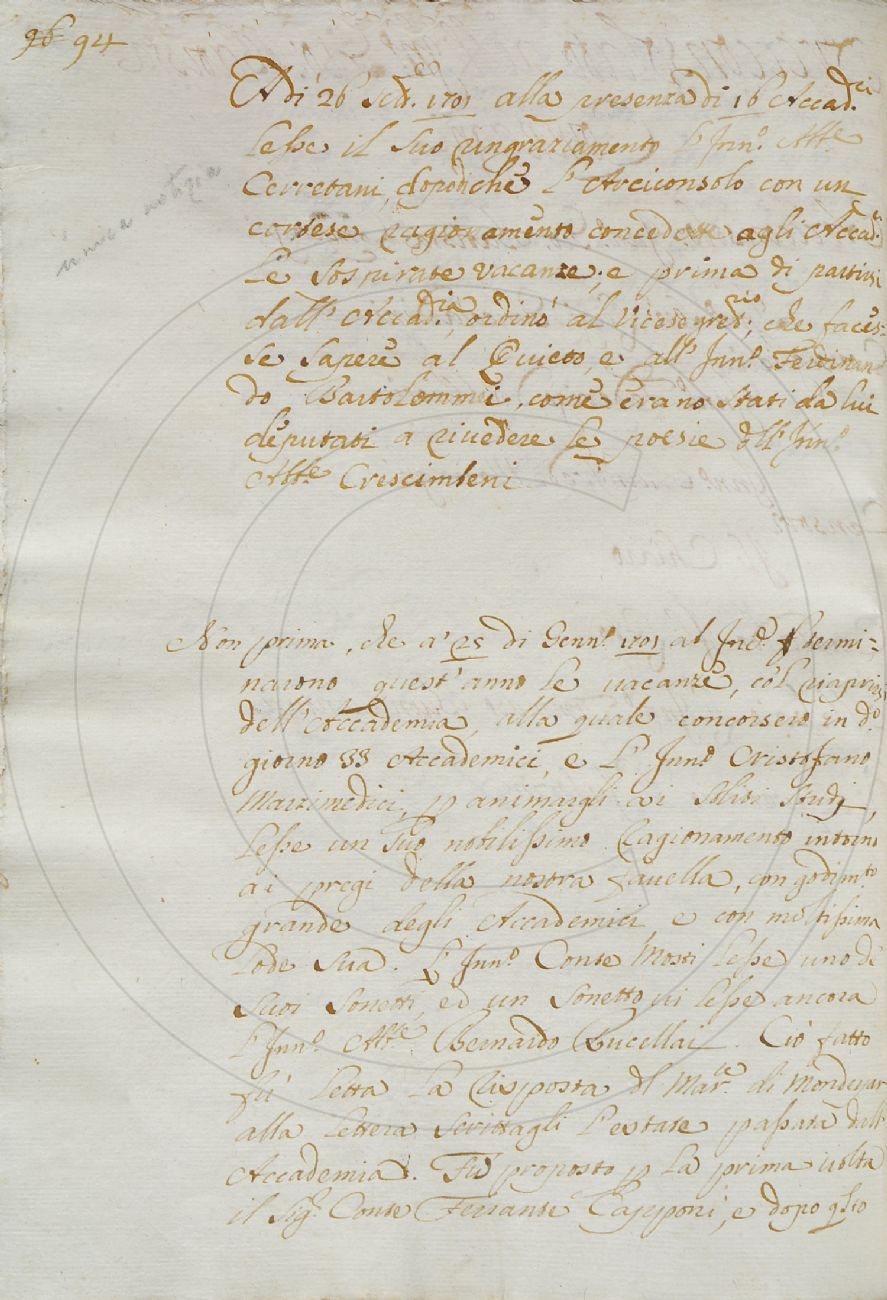 96 94
A dì 26 Sett.re 1701 alla presenza di 16 Accad.ci
lesse il suo ringraziamento l'Inn.o Ab.e
Cerretani, dopodiché l'Arciconsolo con un
cortese ragionamento concedette agli Accad.ci
le sospirate vacanze, e prima di partirsi
dall'Accad.ia, ordinò al Vicesegret.rio, che faces=
se sapere al Rivieto, e all'Inn.o Ferdinan
do Bartolommei, come erano stati da lui
deputati a rivedere le poesie dell'Inn.o
Ab.e Crescimbeni
unica notizia
Non prima, che a' 25 di Genn.o 1701 al Inc.e termi=
narono quest'anno le vacanze, col riaprirsi
dell'Accademia, alla quale concorsero in d.o
giorno 33 Accademici, e l'Inn.o Cristofano
Marzimedici, p animargli ai soliti studj,
lesse un suo nobilissimo ragionamento intorno
ai pregi della nostra favella, con godim.to
grande degli Accademici, e con moltissima
lode sua. L'Inn.o Conte Mosti lesse uno de'
suoi sonetti, ed un sonetto vi lesse ancora
l'Inn.o Ab.e Bernardo Rucellai. Ciò fatto
fù letta la risposta del Mar.se di Mondejar
alla lettera scrittagli l'estate passata dall'
Accademia. Fù proposto p la prima volta
il Sig.r Conte Ferrante Capponi, e dopo q.sto